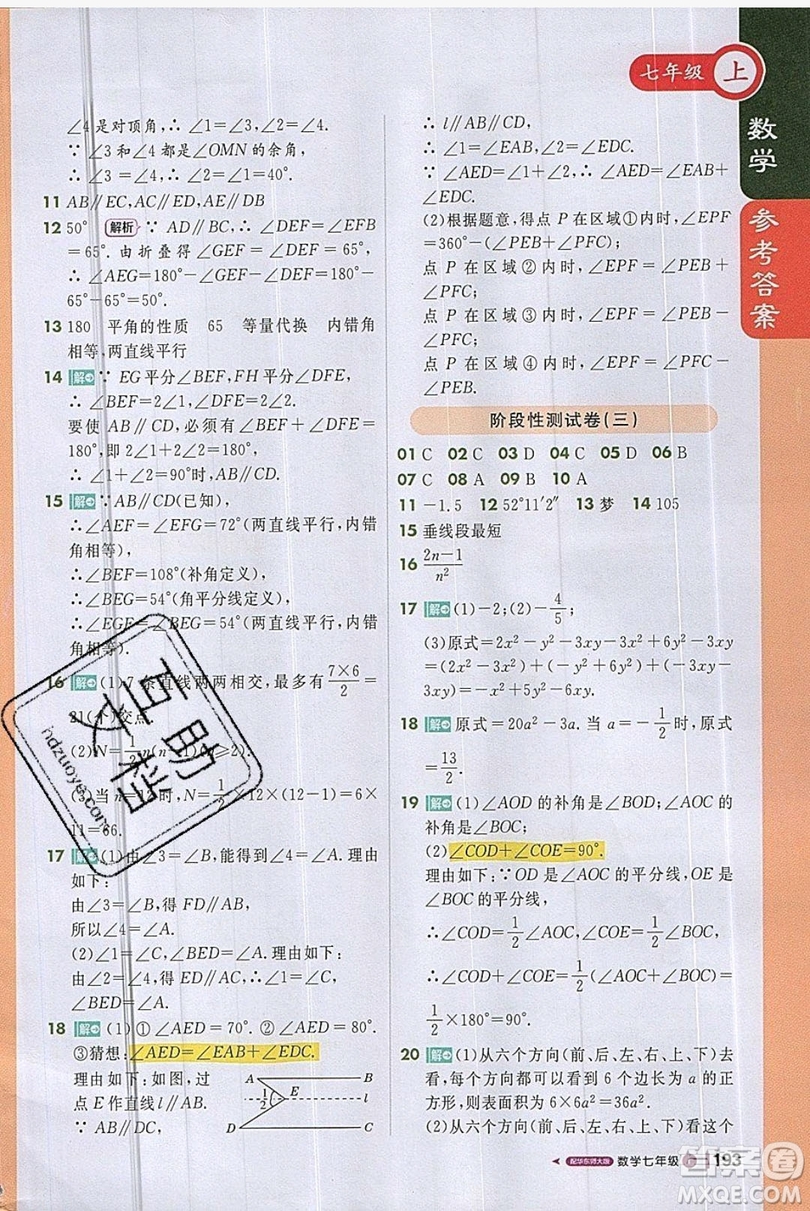 七年级 上
数学
参考答案
∠4 是对顶角,∴ ∠1=∠3,∠2=∠4.
∵ ∠3 和∠4 都是∠OMN 的余角,
∴ ∠3=∠4,∴ ∠2=∠1=40°.
11 AB∥EC,AC∥ED,AE∥DB
12 50° 解析 ∵ AD∥BC,∴ ∠DEF=∠EFB
=65°. 由折叠得∠GEF=∠DEF=65°,
∴ ∠AEG=180°-∠GEF-∠DEF=180°-
65°-65°=50°.
13 180 平角的性质 65 等量代换 内错角
相等,两直线平行
14 解 ∵ EG 平分∠BEF,FH 平分∠DFE,
∴ ∠BEF=2∠1,∠DFE=2∠2.
要使 AB∥CD,必须有∠BEF+∠DFE=
180°,即 2∠1+2∠2=180°,
∴ ∠1+∠2=90°时,AB∥CD.
15 解 ∵AB∥CD(已知),
∴∠AEF=∠EFG=72°(两直线平行,内错
角相等),
∴∠BEF=108°(补角定义),
∴∠BEG=54°(角平分线定义),
∴∠EGF=∠BEG=54°(两直线平行,内错
角相等).
16 解 (1)7 条直线两两相交,最多有 7×6/2 =
21(个)交点.
(2)N=1/2 n(n-1)(n≥2).
(3)当 n=12 时,N=1/2×12×(12-1)=6×
11=66.
17 解 (1)由∠3=∠B,能得到∠4=∠A. 理由
如下:
由∠3=∠B,得 FD∥AB,
所以∠4=∠A.
(2)∠1=∠C,∠BED=∠A. 理由如下:
由∠2=∠4,得 ED∥AC,∴ ∠1=∠C,
∠BED=∠A.
18 解 (1) ①∠AED=70°. ②∠AED=80°.
③猜想:∠AED=∠EAB+∠EDC.
理由如下:如图,过
点 E 作直线 l∥AB.
∵ AB∥CD,
A B
1
2 E l
D C
∴ l∥AB∥CD,
∴ ∠1=∠EAB,∠2=∠EDC.
∵ ∠AED=∠1+∠2,∴ ∠AED=∠EAB+
∠EDC.
(2)根据题意,得点 P 在区域①内时,∠EPF
=360°-(∠PEB+∠PFC);
点 P 在区域②内时,∠EPF=∠PEB+
∠PFC;
点 P 在区域③内时,∠EPF=∠PEB-
∠PFC;
点 P 在区域④内时,∠EPF=∠PFC-
∠PEB.
阶段性测试卷(三)
01 C 02 C 03 D 04 C 05 D 06 B
07 C 08 A 09 B 10 A
11 -1.5 12 52°11′2″ 13 梦 14 105
15 垂线段最短
16 2n-1/n²
17 解 (1)-2;(2)-4/5;
(3)原式=2x²-y²-3xy-3x²+6y²-3xy
=(2x²-3x²)+(-y²+6y²)+(-3xy-
3xy)=-x²+5y²-6xy.
18 解 原式=20a²-3a. 当 a=-1/2 时,原式
=13/2.
19 解 (1)∠AOD 的补角是∠BOD;∠AOC 的
补角是∠BOC;
(2)∠COD+∠COE=90°.
理由如下:∵OD 是∠AOC 的平分线,OE 是
∠BOC 的平分线,
∴∠COD=1/2∠AOC,∠COE=1/2∠BOC,
∴∠COD+∠COE=1/2(∠AOC+∠BOC)=
1/2×180°=90°.
20 解 (1)从六个方向(前、后、左、右、上、下)去
看,每个方向都能看到 6 个边长为 a 的正
方形,则表面积为 6×6×a²=36a².
(2)从六个方向(前、后、左、右、上、下)去看,
配华东师大版 数学七年级 193
互助
文档
hdzuoye.com
答案圈
MXQE.COM